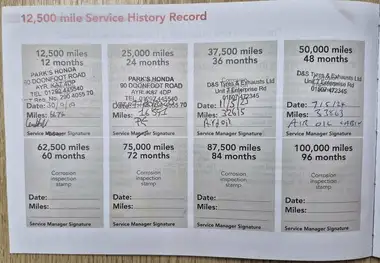 12,500 mile Service History Record
12,500 miles
12 months
PARK'S HONDA
90 DOONFOOT ROAD
AYR. KA7 4DP
TEL. 01292 445540
Date:
Miles:
Service Manager Signature
25,000 miles
24 months
PARK'S HONDA
90 DOONFOOT ROAD
AYR. KA7 4DP
Miles:
Service Manager Signature
37,500 miles
36 months
D&S Tyres & Exhausts Ltd
Unit 7 Enterprise Rd
Date:
Miles: 32615
Service Manager Signature
50,000 miles
48 months
D&S Tyres & Exhausts Ltd
Unit 7 Enterprise Rd
Date: 7/5/24
Miles:
AIR OIL
Service Manager Signature
62,500 miles
60 months
Corrosion
inspection
stamp
Date:
Miles:
Service Manager Signature
75,000 miles
72 months
Corrosion
inspection
stamp
Date:
Miles:
Service Manager Signature
87,500 miles
84 months
Corrosion
inspection
stamp
Date:
Miles:
Service Manager Signature
100,000 miles
96 months
Corrosion
inspection
stamp
Date:
Miles:
Service Manager Signature